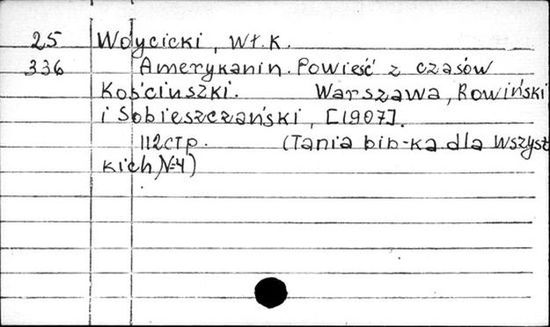 25 Woycicki, Wł. K.
336 Amerykanin. Powieść z czasów
Kościuszki. Warszawa, Rowiński
i Sobieszczański, [1907].
112 стр. (Tania bib-ka dla wszyst
kich, №4)